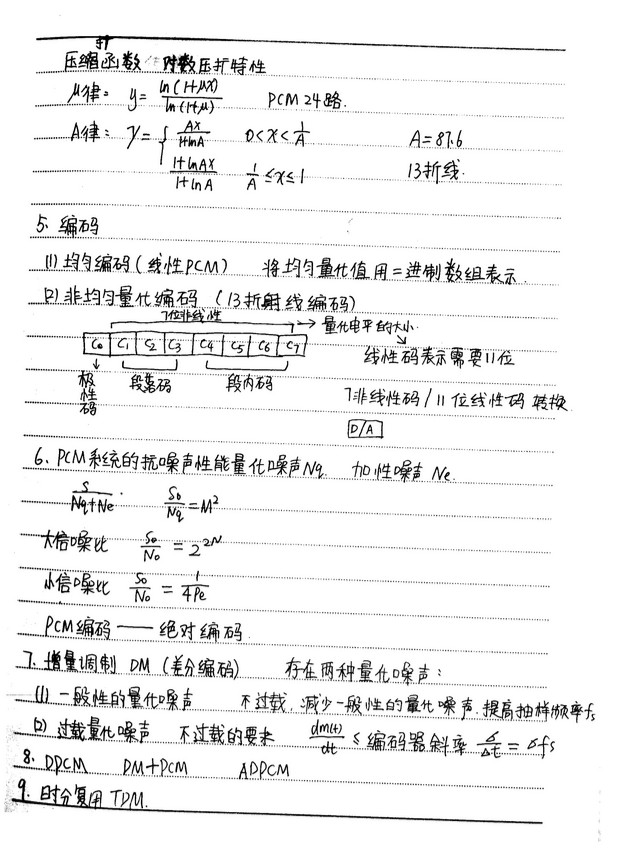 压缩扩函数 对数压扩特性
μ律: y = ln(1+μx) / ln(1+μ) PCM 24路.
A律: y = { Ax / 1+lnA 0<x<1/A A=87.6
1+lnAx / 1+lnA 1/A ≤x≤1 13折线.
5. 编码
(1) 均匀编码(线性PCM) 将均匀量化值用二进制数组表示.
(2) 非均匀量化编码 (13折射线编码)
7位非线性 → 量化电平的大小.
C0 C1 C2 C3 C4 C5 C6 C7 线性码表示需要11位
极性码 段落码 段内码 7非线性码/11位线性码 转换
D/A
6. PCM系统的抗噪声性能量化噪声Nq. 加性噪声 Ne.
S / Nq+Ne . S0/Nq = M²
大信噪比 S0/N0 = 2^2N
小信噪比 S0/N0 = 1/4Pe
PCM编码 —— 绝对编码.
7. 增量调制 DM (差分编码) 存在两种量化噪声:
(1) 一般性的量化噪声 不过载. 减少一般性的量化噪声. 提高抽样频率fs
(2) 过载量化噪声 不过载的要求 dm(t)/dt ≤ 编码器斜率 σ/Δt = σfs
8. DPCM DM+PCM ADPCM
9. 时分复用 TDM.